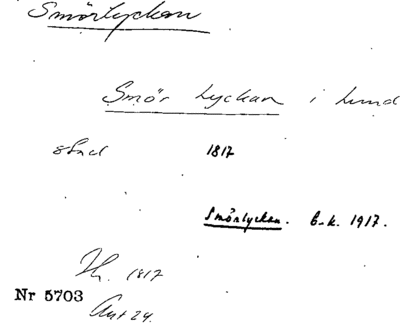 Smörlyckan
Smör Lyckan i Lund
stad 1817
Smörlyckan. b.k. 1917.
Th. 1817
Nr 5703
Ant 24.